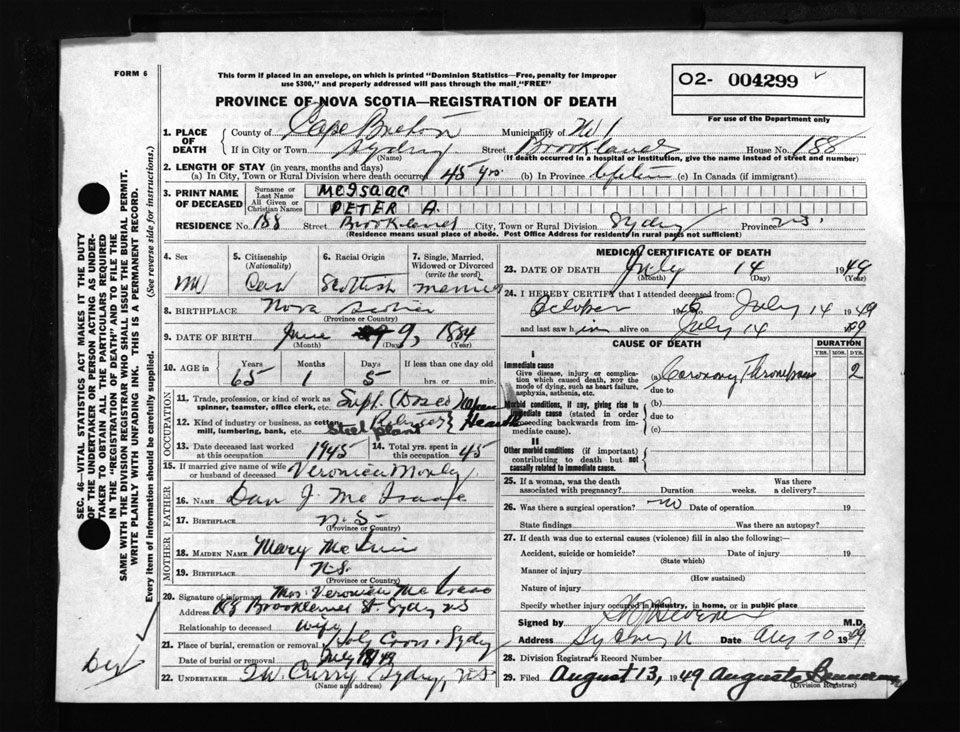 FORM 6
This form if placed in an envelope, on which is printed "Dominion Statistics—Free, penalty for improper
use $300," and properly addressed will pass through the mail, "FREE"
O2- 004299
For use of the Department only
PROVINCE OF NOVA SCOTIA—REGISTRATION OF DEATH
1. PLACE OF DEATH
County of Cape Breton Municipality of No 1
If in City or Town Sydney Street Brookland House No. 188
(Name) (If death occurred in a hospital or institution, give the name instead of street and number)
2. LENGTH OF STAY (in years, months and days)
(a) In City, Town or Rural Division where death occurred 45 yrs. (b) In Province lifetime (c) In Canada (if immigrant)
3. PRINT NAME OF DECEASED
Surname or Last Name McISAAC
All Given or Christian Names PETER A.
RESIDENCE No. 188 Street Brookland City, Town or Rural Division Sydney Province N.S.
(Residence means usual place of abode. Post Office Address for residents in rural parts not sufficient)
4. Sex 5. Citizenship (Nationality) 6. Racial Origin 7. Single, Married, Widowed or Divorced (write the word)
M Can Scottish married
8. BIRTHPLACE Nova Scotia
(Province or Country)
9. DATE OF BIRTH June 9, 1884
(Month) (Day) (Year)
10. AGE in Years Months Days If less than one day old
65 1 5 hrs. or min.
OCCUPATION
11. Trade, profession, or kind of work as spinner, teamster, office clerk, etc. Supt. (Dosco Open
12. Kind of industry or business, as cotton mill, lumbering, bank, etc. Steel plant Hearth
13. Date deceased last worked at this occupation 1945 14. Total yrs. spent in this occupation 45
15. If married give name of wife or husband of deceased Veronica
FATHER
16. NAME Dan J. McIsaac
17. BIRTHPLACE N.S.
(Province or Country)
MOTHER
18. MAIDEN NAME Mary
19. BIRTHPLACE N.S.
(Province or Country)
20. Signature of informant Mrs. Veronica McIsaac
Address 188 Brookland St. Sydney NS
Relationship to deceased wife
21. Place of burial, cremation or removal Holy Cross, Sydney
Date of burial or removal July 18/49
22. UNDERTAKER T.W. Curry Sydney, N.S.
(Name and address)
MEDICAL CERTIFICATE OF DEATH
23. DATE OF DEATH July 14 1949
(Month) (Day) (Year)
24. I HEREBY CERTIFY that I attended deceased from:
October 1946 July 14 1949
and last saw him alive on July 14 1949
CAUSE OF DEATH DURATION
YRS. MOS. DYS.
I
Immediate cause
Give disease, injury or complication which caused death, NOT the mode of dying, such as heart failure, asphyxia, asthenia, etc.
(a) Coronary Thrombosis 2
due to
Morbid conditions, if any, giving rise to immediate cause (stated in order proceeding backwards from immediate cause).
(b)
due to
(c)
II
Other morbid conditions (if important) contributing to death but not causally related to immediate cause.
25. If a woman, was the death associated with pregnancy? Duration weeks. Was there a delivery?
26. Was there a surgical operation? no Date of operation 19
State findings Was there an autopsy?
27. If death was due to external causes (violence) fill in also the following:
Accident, suicide or homicide? Date of injury 19
(State which)
Manner of injury
(How sustained)
Nature of injury
Specify whether injury occurred in industry, in home, or in public place
Signed by M.D.
Address Sydney N Date Aug 10 1949
28. Division Registrar's Record Number
29. Filed August 13, 1949 Augusta
(Division Registrar)
SEC. 46—VITAL STATISTICS ACT MAKES IT THE DUTY
OF THE UNDERTAKER OR PERSON ACTING AS UNDER-
TAKER TO OBTAIN ALL THE PARTICULARS REQUIRED
IN THE "REGISTRATION OF DEATH" AND TO FILE THE
SAME WITH THE DIVISION REGISTRAR WHO SHALL ISSUE THE BURIAL PERMIT.
WRITE PLAINLY WITH UNFADING INK. THIS IS A PERMANENT RECORD.
Every item of information should be carefully supplied. (See reverse side for instructions.)